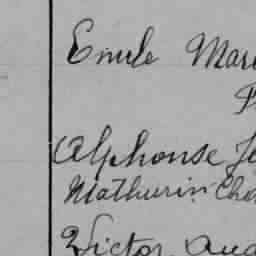 Emile Mari
Alphonse Je
Mathurin Cha
Victor Aug